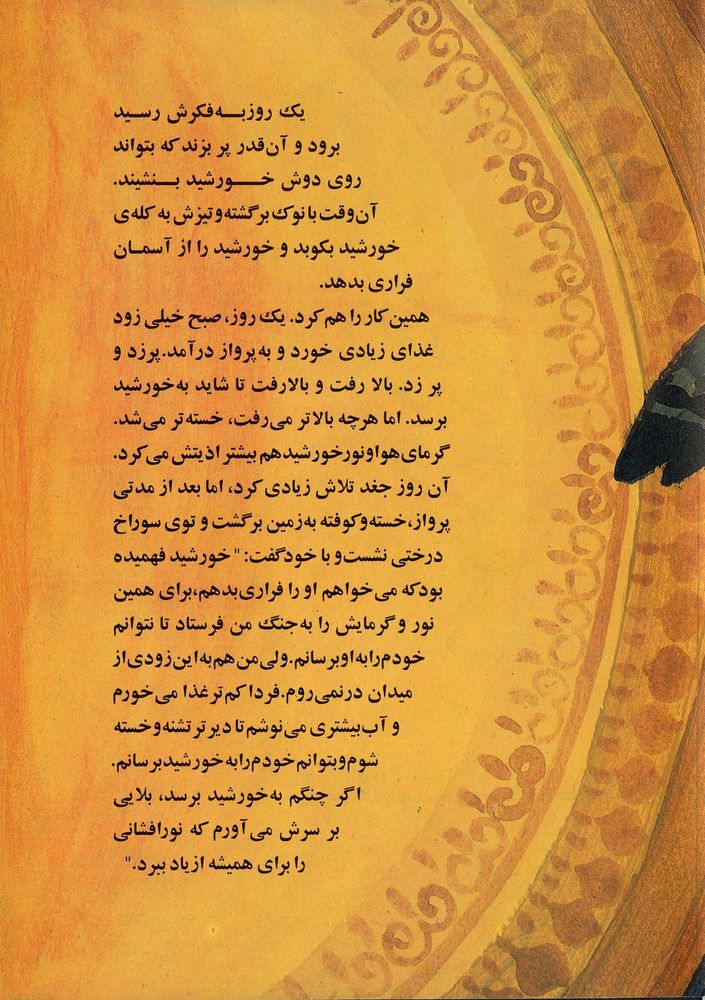 یک روز به فکرش رسید
برود و آن‌قدر پر بزند که بتواند
روی دوش خورشید بنشیند.
آن وقت با نوک برگشته و تیزش به کله‌ی
خورشید بکوبد و خورشید را از آسمان
فراری بدهد.
همین کار را هم کرد. یک روز، صبح خیلی زود
غذای زیادی خورد و به پرواز درآمد. پر زد و
پر زد. بالا رفت و بالا رفت تا شاید به خورشید
برسد. اما هرچه بالاتر می‌رفت، خسته‌تر می‌شد.
گرمای هوا و نور خورشید هم بیشتر اذیتش می‌کرد.
آن روز جغد تلاش زیادی کرد، اما بعد از مدتی
پرواز، خسته و کوفته به زمین برگشت و توی سوراخ
درختی نشست و با خود گفت: "خورشید فهمیده
بود که می‌خواهم او را فراری بدهم، برای همین
نور و گرمایش را به جنگ من فرستاد تا نتوانم
خودم را به او برسانم. ولی من هم به این زودی از
میدان در نمی‌روم. فردا کم‌تر غذا می‌خورم
و آب بیشتری می‌نوشم تا دیرتر تشنه و خسته
شوم و بتوانم خودم را به خورشید برسانم.
اگر چنگم به خورشید برسد، بلایی
بر سرش می‌آورم که نورافشانی
را برای همیشه از یاد ببرد."